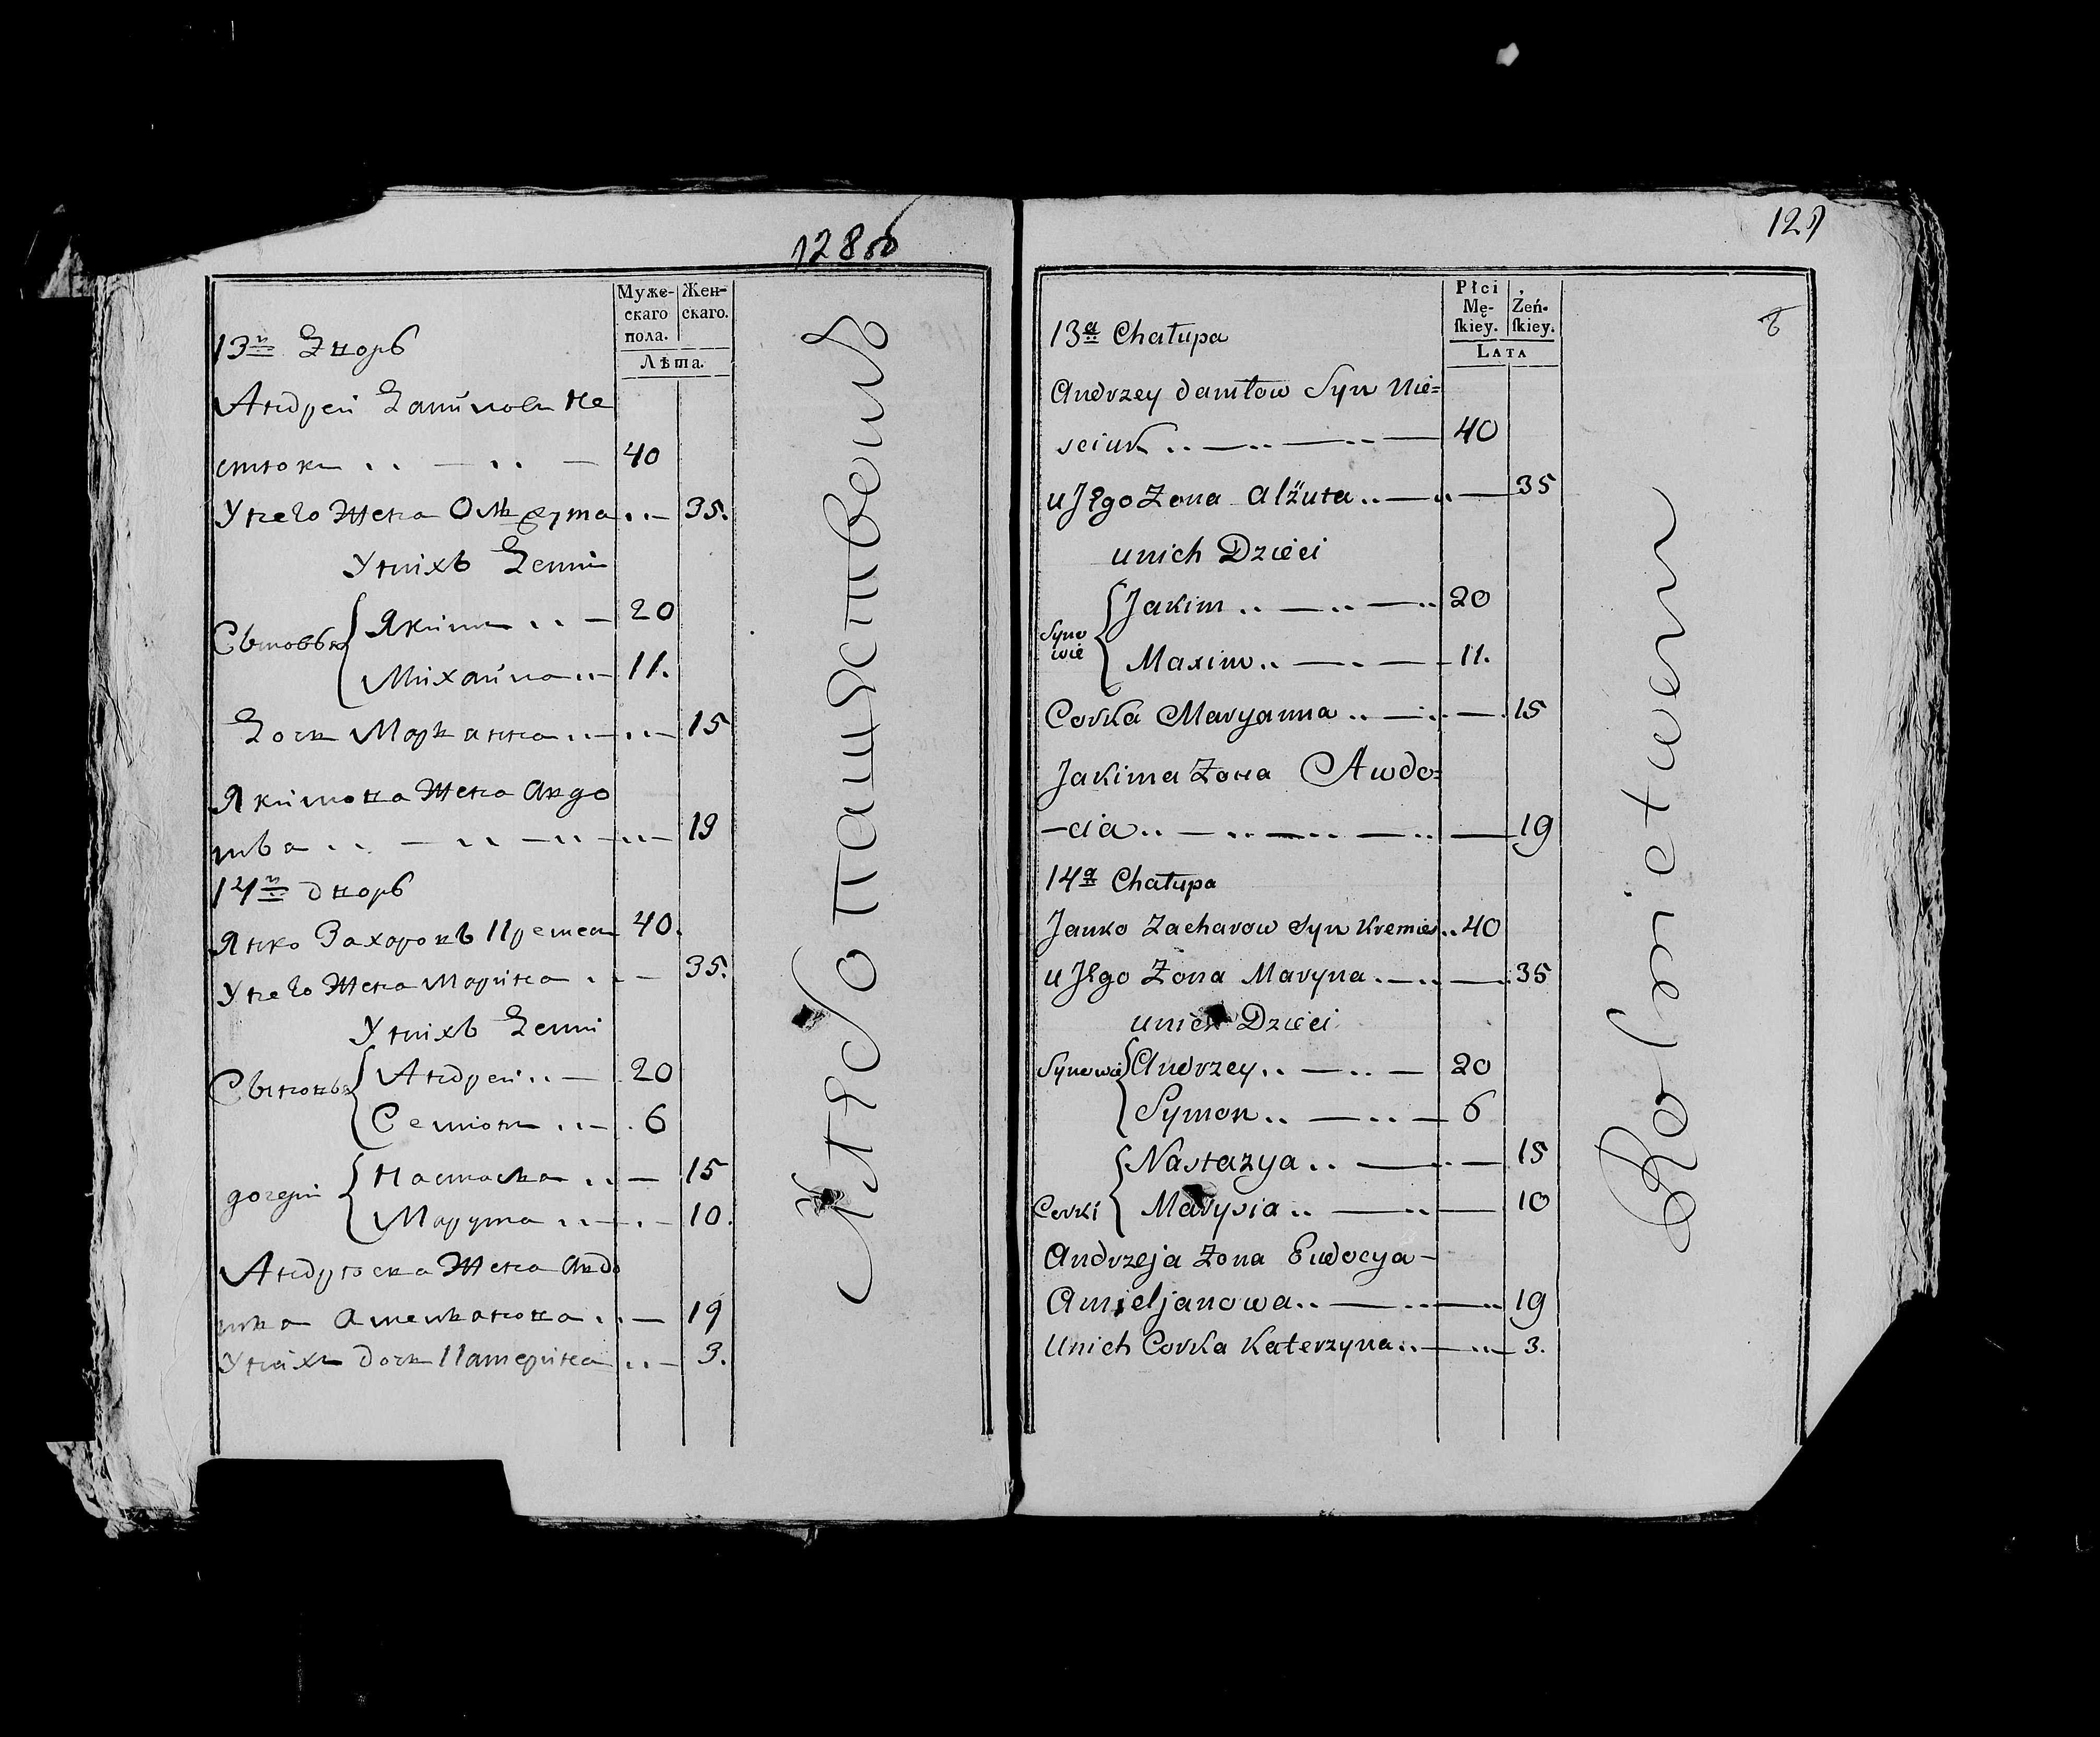 128об
Мужескаго пола.
Женскаго.
Лѣта.
13й Дворъ
Андрей Данилов Не
стюк 40
У него Жена Олжута 35.
У них Дети
Сыновья Яким 20
Михайло 11.
Дочь Марьянна 15
Якимова Жена Авдо
тья 19
14й дворъ
Янко Захоровъ Кремен 40.
У него Жена Марина 35.
У нихъ Дети
Сыновья Андрей 20
Семион 6
дочери Настаска 15
Марута 10.
19
У них дочь Катерина 3.
129
Płci Męſkiey.
Żeńſkiey.
LATA
13a Chałupa
Andrzey Daniłow Syn Nie=
sciuk 40
u Jego Zona Alżuta 35
u nich Dzieci
Synowie Jakim 20
Maxim 11.
Corka Maryanna 15
Jakima Zona Awdo=
-cia 19
14a Chałupa
Janko Zacharow Syn Kremies 40
u Jego Zona Maryna 35
u nich Dzieci
Synowie Andrzey 20
Symon 6
Nastazya 15
Corki Marysia 10
Andrzeja Zona Ewdocya
Amieljanowa 19
U nich Corka Katerzyna 3.